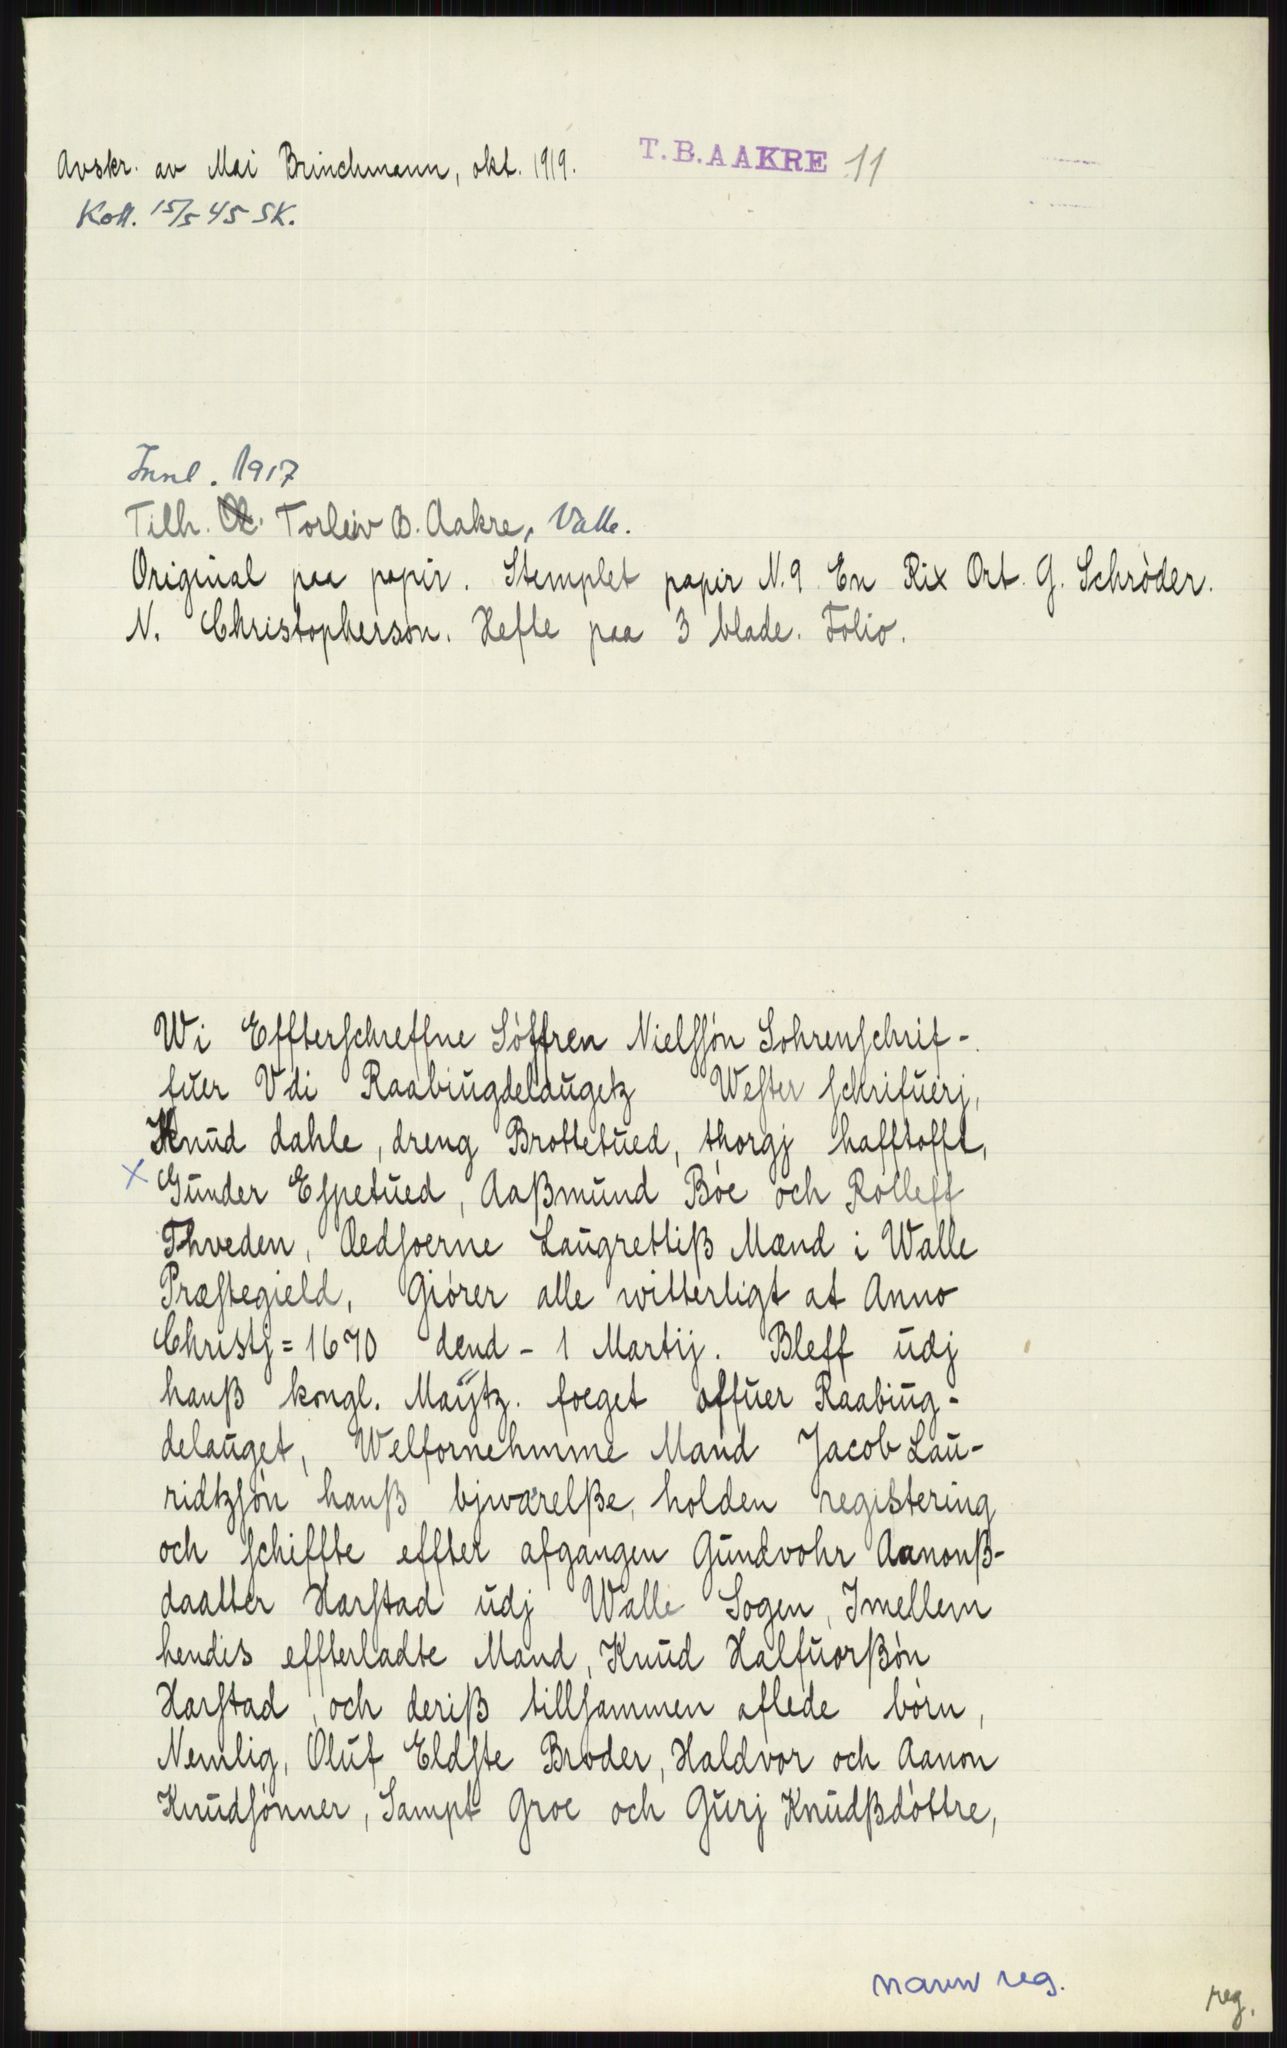 Avskr. av Mai Brinchmann, okt. 1919.
T.B.AAKRE 11
Koll. 15/5 45 SK.
Innl. 1917
Tilh. Torleiv B. Aakre, Valle.
Original paa papir. Stemplet papir N. 9 En Rix Ort. G. Schrøder.
N. Christophersøn. Hefte paa 3 blade. Folio.
Wi Effterschreffne Søffren Nielssøn Sohrenschrif-
fuer Vdi Raabiugdelaugetz Wester schrifuerj,
Knud dahle, dreng Brottetued, thorgj hafftofft,
x Gunder Espetued, Aaßmund Bøe och Rolleff
Thveden, Aedsoerne Laugrettiß Mænd i Walle
Præstegield, Giører alle witterligt at Anno
Christj = 1670 dend - 1 Martij. Bleff udj
hanß kongl. Maÿtz. foeget offuer Raabiug-
delauget, Welfornehmme Mand Jacob Lau-
ridtzsøn hanß bjwærelße, holden registering
och schiffte effter afgangen Gundvohr Aanonß-
daatter Harstad udj Walle Sogen, Imellem
hendis effterladte Mand, Knud Halfuorßøn
Harstad, och deriß tillsammen aflede børn,
Nemlig, Oluf Eldste Broder, Haldvor och Aanon
Knudsønner, Sampt Groe och Gurj Knudßdøttre,
navn reg.
reg.